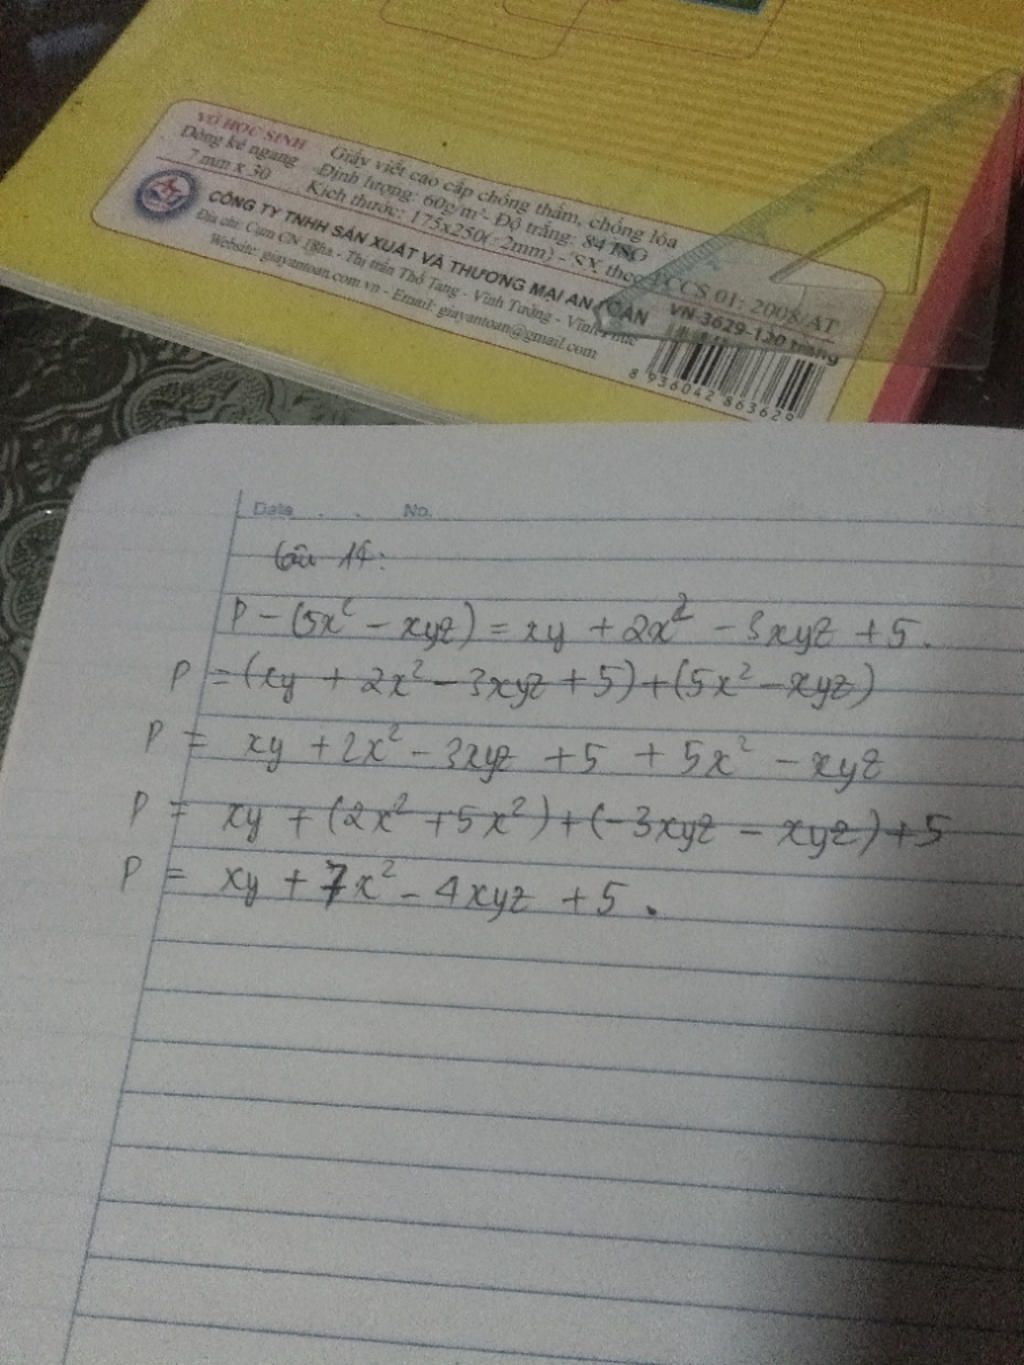 VỞ HỌC SINH
Dòng kẻ ngang
7 mm x 30
Giấy viết cao cấp chống thấm, chống lóa
Định lượng: 60g/m² - Độ trắng: 84 ISO
Kích thước: 175x250(±2mm) - SX theo TCCS 01: 2008/AT
CÔNG TY TNHH SẢN XUẤT VÀ THƯƠNG MẠI AN TOÀN
Địa chỉ: Cụm CN 18ha - Thị trấn Thổ Tang - Vĩnh Tường - Vĩnh Phúc
Website: giayantoan.com.vn - Email: giayantoan@gmail.com
VN-3629-120 trang
8 936042 863629
Date . . No.
Câu 14:
P - (5x² - xyz) = xy + 2x² - 3xyz + 5.
P = (xy + 2x² - 3xyz + 5) + (5x² - xyz)
P = xy + 2x² - 3xyz + 5 + 5x² - xyz
P = xy + (2x² + 5x²) + (-3xyz - xyz) + 5
P = xy + 7x² - 4xyz + 5.